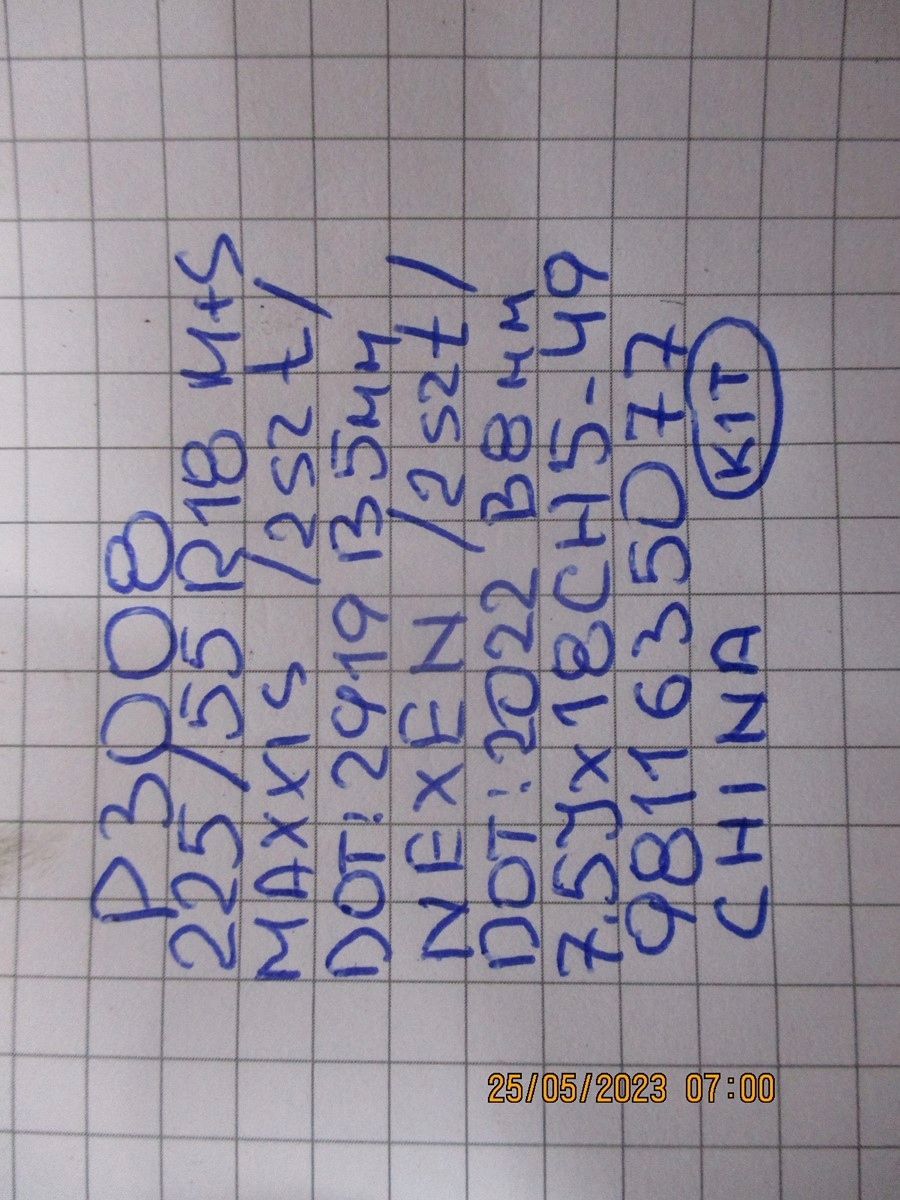 P3008
225/55 R18 M+S
MAXXIS /2szt/
DOT:2919 B5mm
NEXEN /2szt/
DOT:2022 B8mm
7.5Jx18CH5-49
9811635077
CHINA KIT
25/05/2023 07:00